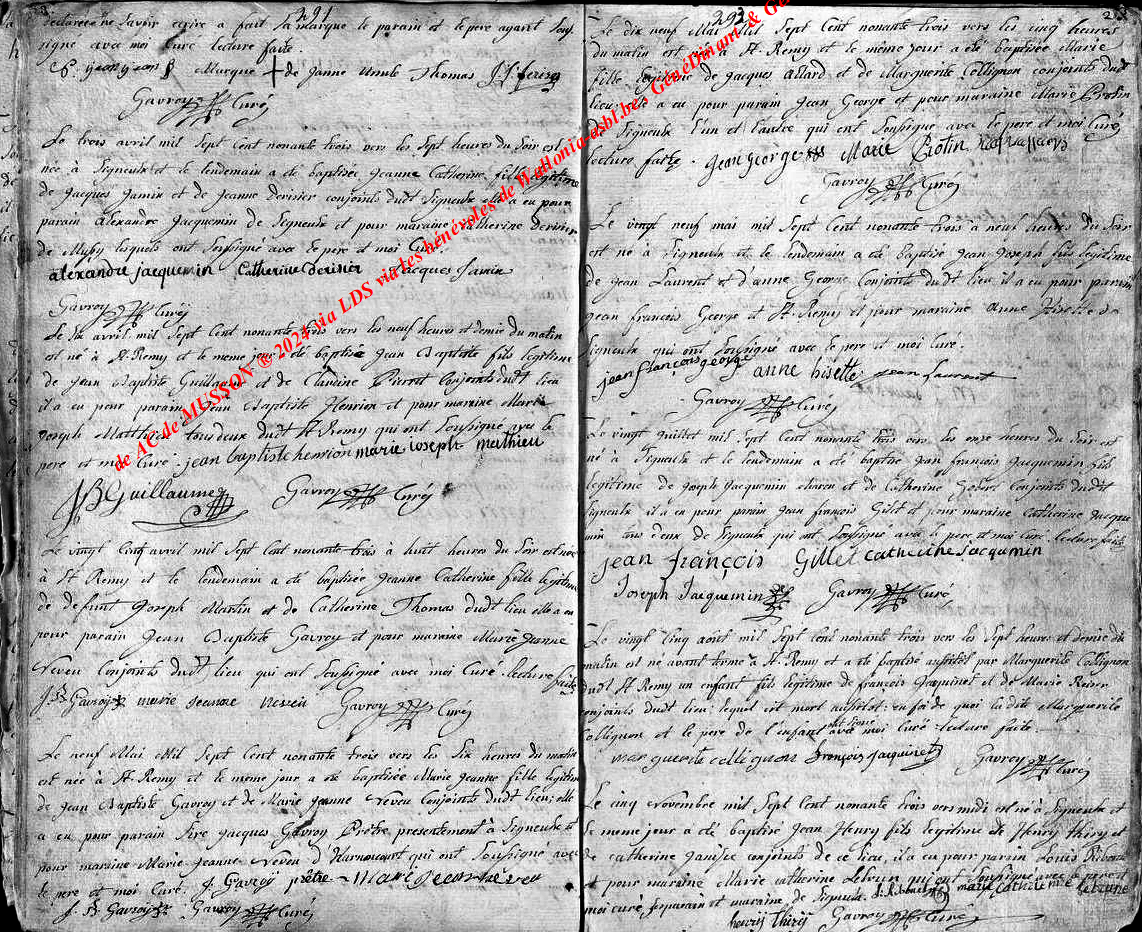 291
declarée ne savoir ecrire a fait sa marque le parain et le pere ayant sous
signé avec moi Curé lecture faite.
Marque + de Janne Ursule Thomas
Gavroy Curé
Le trois avril mil sept cent nonante trois vers les sept heures du soir est
née à Signeulx et le lendemain a été baptisée Jeanne Catherine fille legitime
de Jacques Jamin et de Jeanne Derisier conjoints dudt Signeulx elle a eu pour
parain alexandre Jacquemin de Signeulx et pour maraine Catherine Derisier
de lesquels ont soussigné avec le pere et moi Curé
alexandre jacquemin Catherine derisier Jacques Jamin
Gavroy Curé
Le six avril mil sept cent nonante trois vers les neuf heures et demie du matin
est né à St. Remy et le meme jour a été baptisé Jean Baptiste fils legitime
de Jean Baptiste Guillaume et de Claudine Pierrot conjoints dudt lieu
il a eu pour parain Jean Baptiste Henrion et pour maraine Marie
Joseph Mathieu tous deux dudt St Remy qui ont soussigné avec le
pere et moi Curé. jean baptiste henrion marie ioseph mathieu
JB Guillaume Gavroy Curé
Le vingt cinq avril mil sept cent nonante trois à huit heures du soir est née
à St Remy et le lendemain a été baptisée Jeanne Catherine fille legitime
de defunt Joseph Martin et de Catherine Thomas dudt lieu elle a eu
pour parain Jean Baptiste Gavroy et pour maraine Marie Jeanne
Neveu conjoints dudt lieu qui ont soussigné avec moi Curé lecture faite
J. Bt Gavroy marie jeanne neveu Gavroy Curé
Le neuf Mai mil sept cent nonante trois vers les six heures du matin
est née à St. Remy et le meme jour a été baptisée Marie Jeanne fille legitime
de Jean Baptiste Gavroy et de Marie Jeanne Neveu conjoints dudt lieu; elle
a eu pour parain Sire Jacques Gavroy Prêtre presentement à Signeulx et
pour maraine Marie Jeanne Neveu d'Harnoncourt qui ont soussigné avec
le pere et moi Curé. J. Gavroy prêtre Marie Jeanne neveu
J. B. Gavroy Gavroy Curé
293
Le dix neuf Mai mil sept cent nonante trois vers les cinq heures
du matin est née à St. Remy et le même jour a été baptisée Marie
fille legitime de Jacques Allard et de Marguerite Collignon conjoints dudt
lieu elle a eu pour parain Jean George et pour maraine Marie Protin
de Signeulx l'un et l'autre qui ont soussigné avec le pere et moi Curé
lecture faite. jean george Marie Protin
Gavroy Curé
Le vingt neuf mai mil sept cent nonante trois à neuf heures du soir
est né à Signeulx et le lendemain a été baptisé Jean Joseph fils legitime
de Jean Laurent et d'anne George conjoints dudt lieu il a eu pour parain
jean françois George de St. Remy et pour maraine Anne Bisette de
Signeulx qui ont soussigné avec le pere et moi Curé.
jean françois george anne bisette jean Laurent
Gavroy Curé
Le vingt juillet mil sept cent nonante trois vers les onze heures du soir est
né à Signeulx et le lendemain a été baptisé Jean françois Jacquemin fils
legitime de Joseph Jacquemin et de Catherine conjoints dudit
Signeulx il a eu pour parain Jean françois Gilet et pour maraine Catherine Jacque
min tous deux de Signeulx qui ont soussigné avec le pere et moi curé lecture faite
jean françois Gillet Catherine Jacquemin
Joseph Jacquemin Gavroy Curé
Le vingt cinq aout mil sept cent nonante trois vers les sept heures et demie du
matin est né avant terme à St. Remy et a été baptisé aussitôt par Marguerite Collignon
dudt St Remy un enfant fils legitime de françois Jacquinet et de Marie
conjoints dudt lieu: lequel est mort aussitôt: en foi de quoi la dite Marguerite
Collignon et le pere de l'enfant ont signé avec moi Curé: lecture faite
marguerite collignon françois Jacquinet Gavroy Curé
Le cinq Novembre mil sept cent nonante trois vers midi est né à Signeulx et
le meme jour a été baptisé Jean Henry fils legitime de Henry Thiry et
de catherine conjoints de ce lieu, il a eu pour parain Louis
et pour maraine Marie catherine Lebrun qui ont soussigné avec le pere et
moi curé, parain et maraine de Signeulx. marie catherine lebrune
henrij thirij Gavroy Curé
de AC de MUSSON ® 2024 via LDS via les bénévoles de Wallonia-asbl.be
GénéDinant &